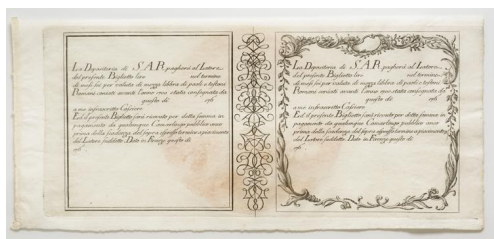 La Depositeria di S. A. R. pagherà al Latore
del presente Biglietto lire nel termine
di mesi sei per valuta di mezza libbra di paoli e testoni
Romani contati avanti l'anno
questo dì
Cassiere
Ed il presente Biglietto sarà ricevuto per detta somma in
pagamento da qualunque Camarlingo pubblico anco
prima della scadenza del sopra espresso termine a piacimento
del Latore suddetto Dato in Firenze questo dì
La Depositeria di S. A. R. pagherà al Latore
del presente Biglietto lire nel termine
di mesi sei per valuta di mezza libbra di paoli e testoni
Romani contati avanti l'anno
questo dì
Cassiere
Ed il presente Biglietto sarà ricevuto per detta somma in
pagamento da qualunque Camarlingo pubblico anco
prima della scadenza del sopra espresso termine a piacimento
del Latore suddetto Dato in Firenze questo dì